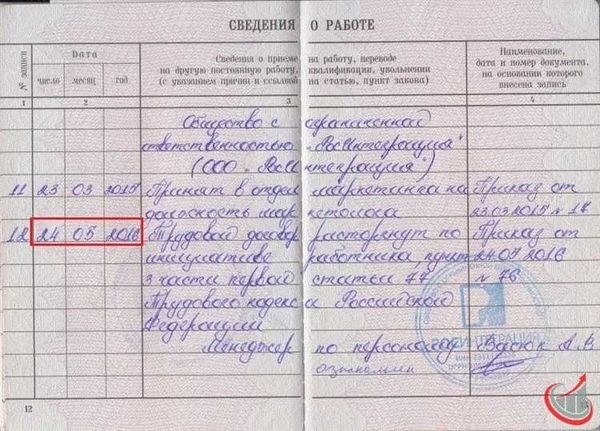 СВЕДЕНИЯ О РАБОТЕ
№ записи
Дата
Сведения о приеме на работу, переводе
на другую постоянную работу, квалификации, увольнении
(с указанием причин и ссылкой на статью, пункт закона)
Наименование,
дата и номер документа,
на основании которого
внесена запись
число месяц год
1 2 3 4
Общество с ограниченной
ответственностью "РосИнтеграция"
(ООО "РосИнтеграция")
11 23 03 2015 Принят в отдел маркетинга на Приказ от
должность маркетолога 23.03.2015 № 17
12 24 05 2016 Трудовой договор расторгнут по Приказ от
инициативе работника пункт 24.05 2016
3 части первой статьи 77 № 76
Трудового кодекса Российской
Федерации
Менеджер по персоналу Васюк А.В
ознакомлен
12